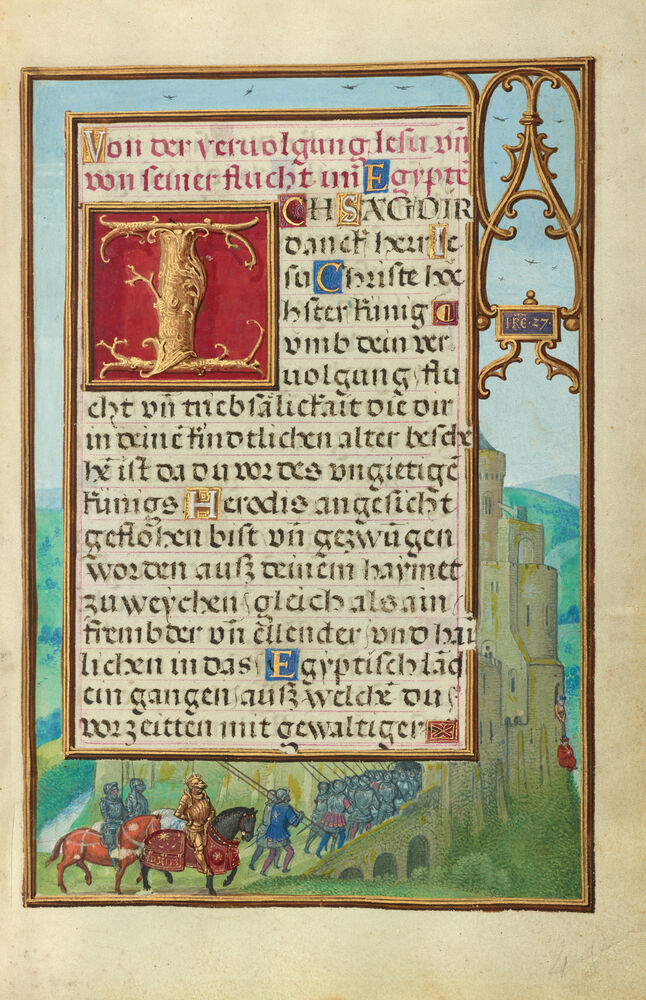 Von der vervolgung Iesu vn̄
von seiner flucht inn Egyptē
ICH SAG DIR
danck herr Ie
su Christe hoe
hster kunig
vmb dein ver
uolgung flu
cht vn̄ triebsalickait die dir
in deinē kindtlichen alter besche
hē ist da du vor des vngietigē
kunigs Herodis angesicht
geflohen bist vn̄ gezwūgen
worden ausz deinem haymet
zu weychen gleich als ain
frembder vn̄ ellender vnd hai
lichen in das Egyptisch lād
ein gangen ausz welchē du
vor zeitten mit gewaltiger